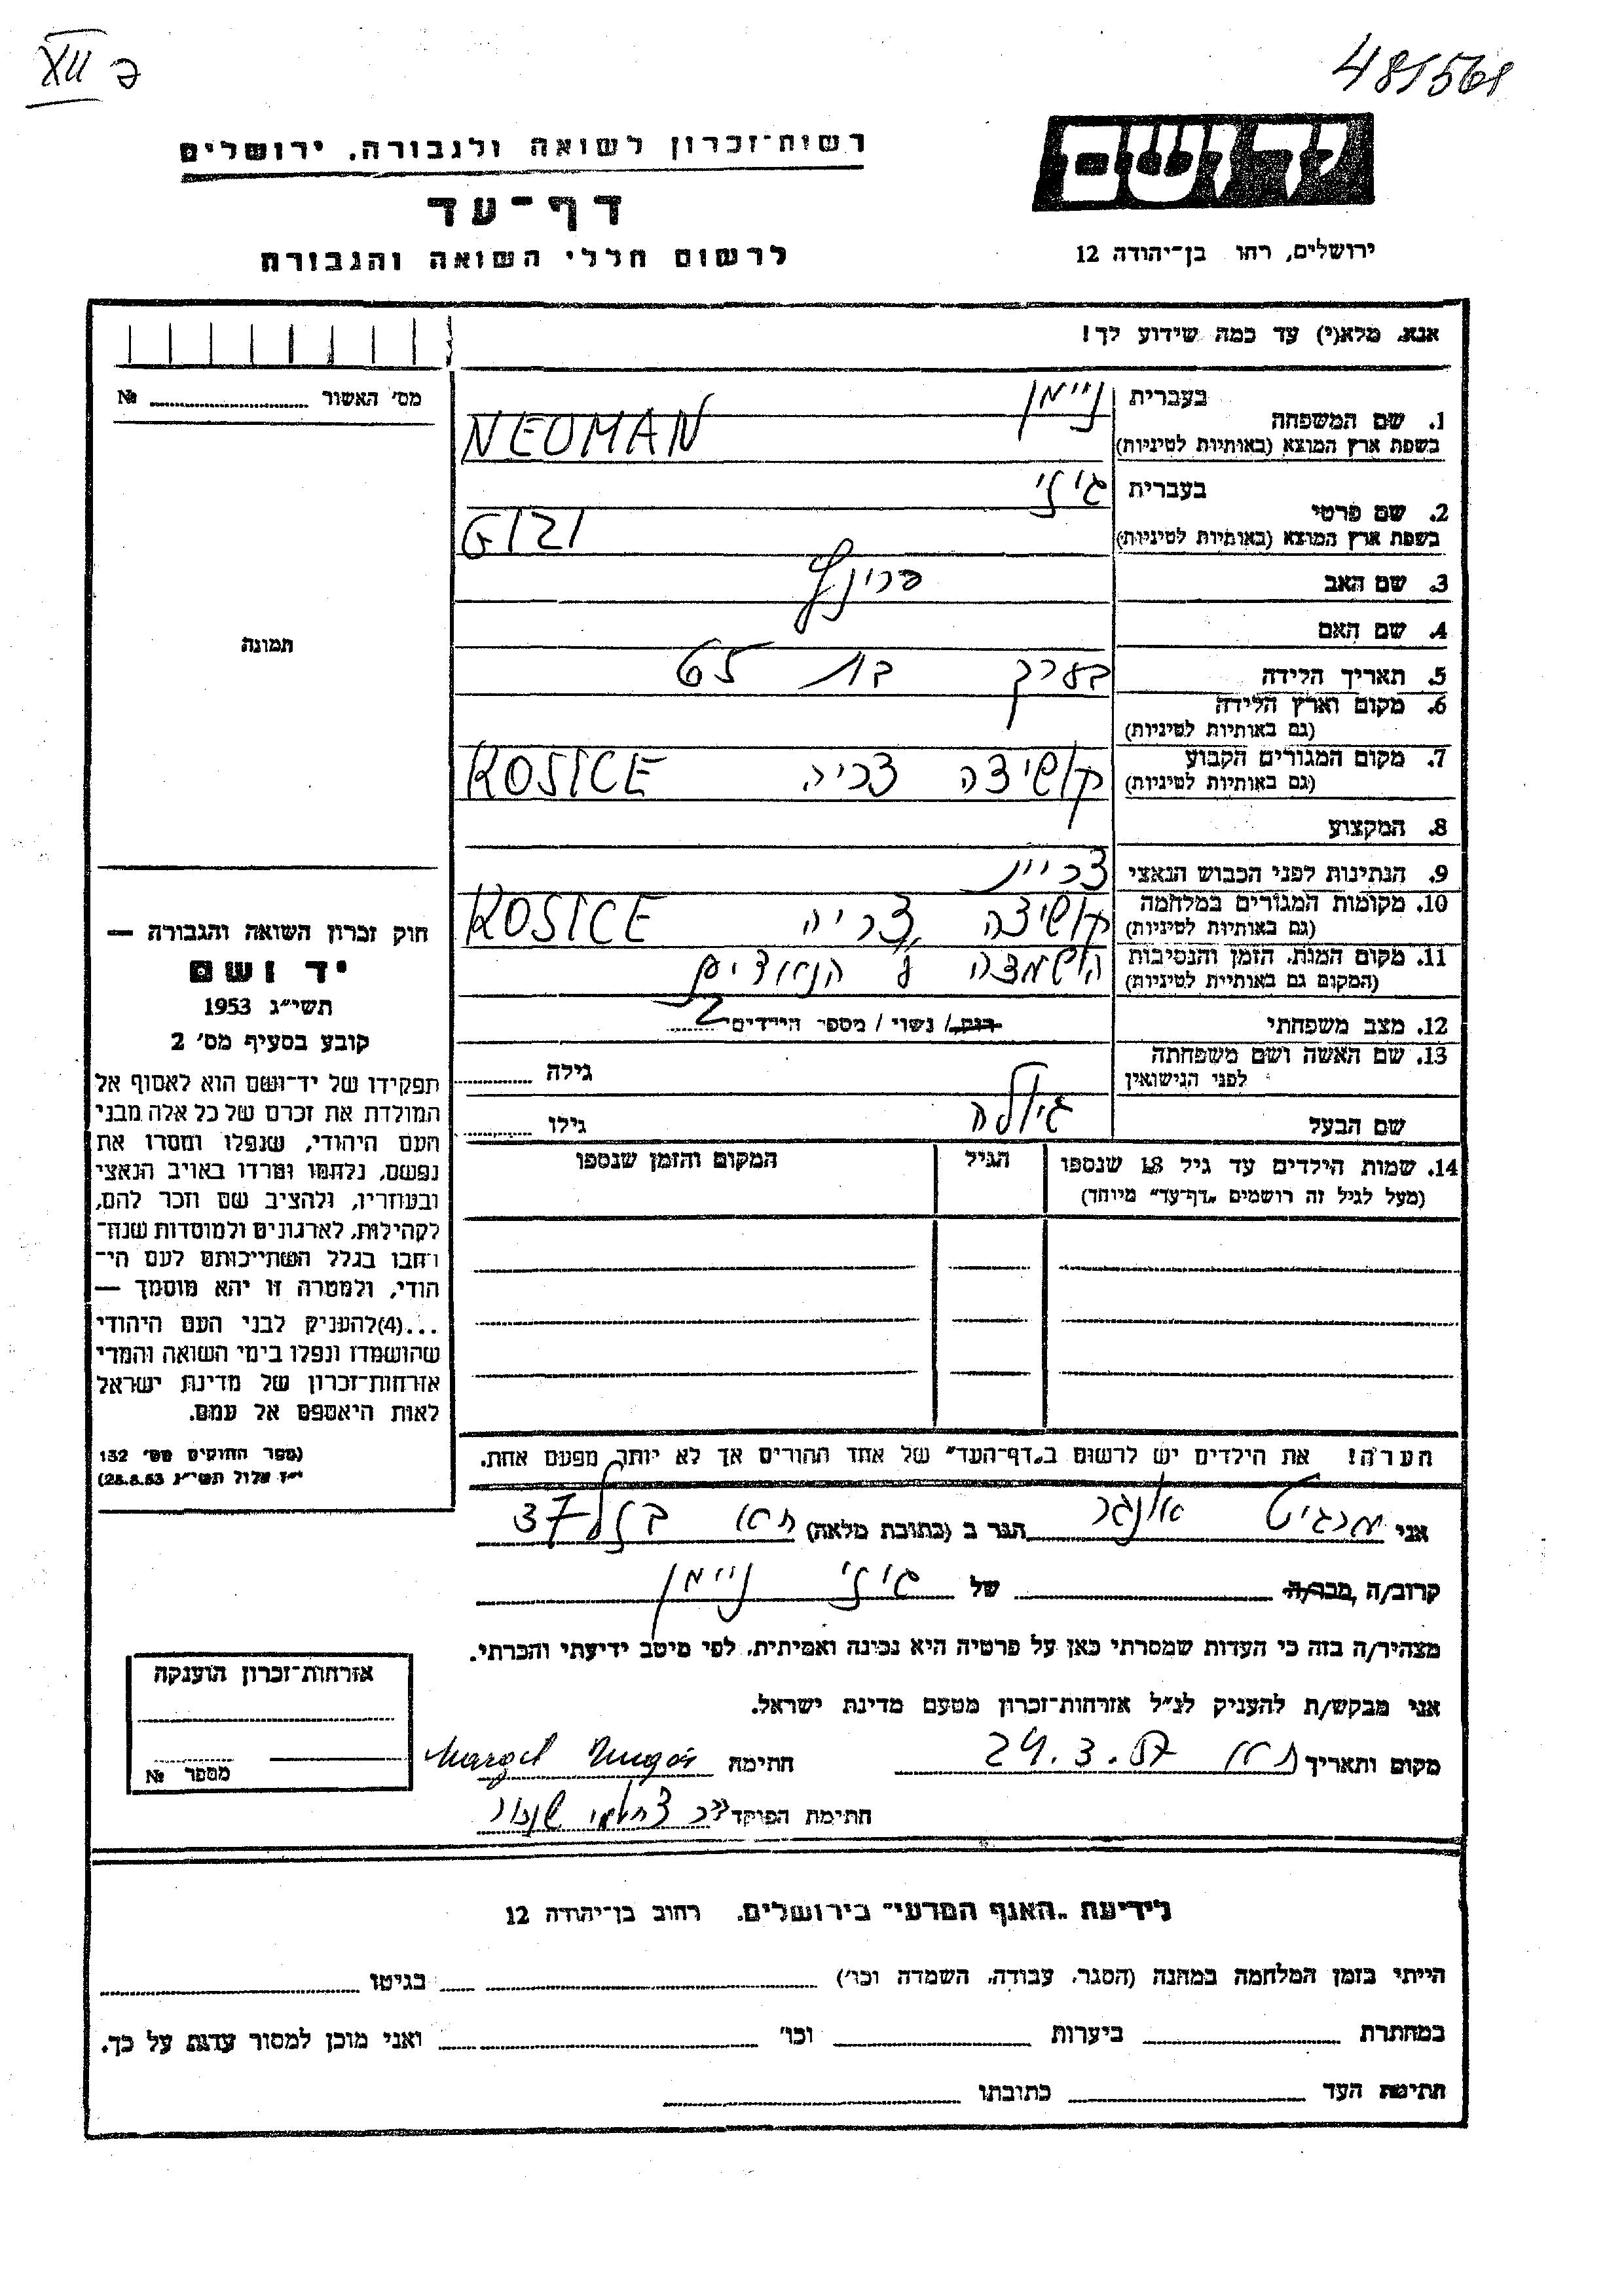 XII ב
481568
יד ושם
רשות־זכרון לשואה ולגבורה, ירושלים
דף־עד
לרשום חללי השואה והגבורה
ירושלים, רחו בן־יהודה 12
אנא, מלא(י) עד כמה שידוע לך!
מס' האשור № ....................
תמונה
1. שם המשפחה בעברית ניימן
בשפת ארץ המוצא (באותיות לטיניות) NEUMAN
2. שם פרטי בעברית גיזי
בשפת ארץ המוצא (באותיות לטיניות) GIZI
3. שם האב
4. שם האם
5. תאריך הלידה בערך בת 65
6. מקום וארץ הלידה
(גם באותיות לטיניות)
7. מקום המגורים הקבוע קושיצה צכיה KOSICE
(גם באותיות לטיניות)
8. המקצוע
9. הנתינות לפני הכבוש הנאצי
10. מקומות המגורים במלחמה קושיצה צכיה KOSICE
(גם באותיות לטיניות)
11. מקום המות, הזמן והנסיבות הושמדה ע״י הנאצים
(המקום גם באותיית לטיניות)
12. מצב משפחתי רוק/ נשוי / מספר הילדים 2
13. שם האשה ושם משפחתה
לפני הנישואין גילה
שם הבעל גיולה גילו
14. שמות הילדים עד גיל 18 שנספו הגיל המקום והזמן שנספו
(מעל לגיל זה רושמים „דף־עד״ מיוחד)
חוק זכרון השואה והגבורה —
יד ושם
תשי״ג 1953
קובע בסעיף מס' 2
תפקידו של יד־ושם הוא לאסוף אל
המולדת את זכרם של כל אלה מבני
העם היהודי, שנפלו ומסרו את
נפשם, נלחמו ומרדו באויב הנאצי
ובעוזריו, ולהציב שם וזכר להם,
לקהילות, לארגונים ולמוסדות שנח־
רחבו בגלל השתייכותם לעם הי־
הודי, ולמטרה זו יהא מוסמך —
...(4)להעניק לבני העם היהודי
שהושמדו ונפלו בימי השואה והמרי
אזרחות־זכרון של מדינת ישראל
לאות היאספם אל עמם.
(ספר החוקים מס' 132
י״ז אלול תשי״ג 28.8.53)
הערה! את הילדים יש לרשום ב„דף־העד״ של אחד ההורים אך לא יותר מפעם אחת.
אני מרגיט אונגר הגר ב (כתובת מלאה) ת״א 37
קרוב/ה, מכר/ה של גיזי ניימן
מצהיר/ה בזה כי העדות שמסרתי כאן על פרטיה היא נכונה ואמיתית, לפי מיטב ידיעתי והכרתי.
אני מבקש/ת להעניק לנ״ל אזרחות־זכרון מטעם מדינת ישראל.
מקום ותאריך ת״א 24.3.57 חתימה
חתימת הפוקד
אזרחות־זכרון הוענקה
מספר №
לידיעת „האגף המדעי״ בירושלים, רחוב בן־יהודה 12
הייתי בזמן המלחמה במחנה (הסגר, עבודה, השמדה וכו') בגיטו
במחתרת ביערות וכו' ואני מוכן למסור עדות על כך.
חתימת העד כתובתו